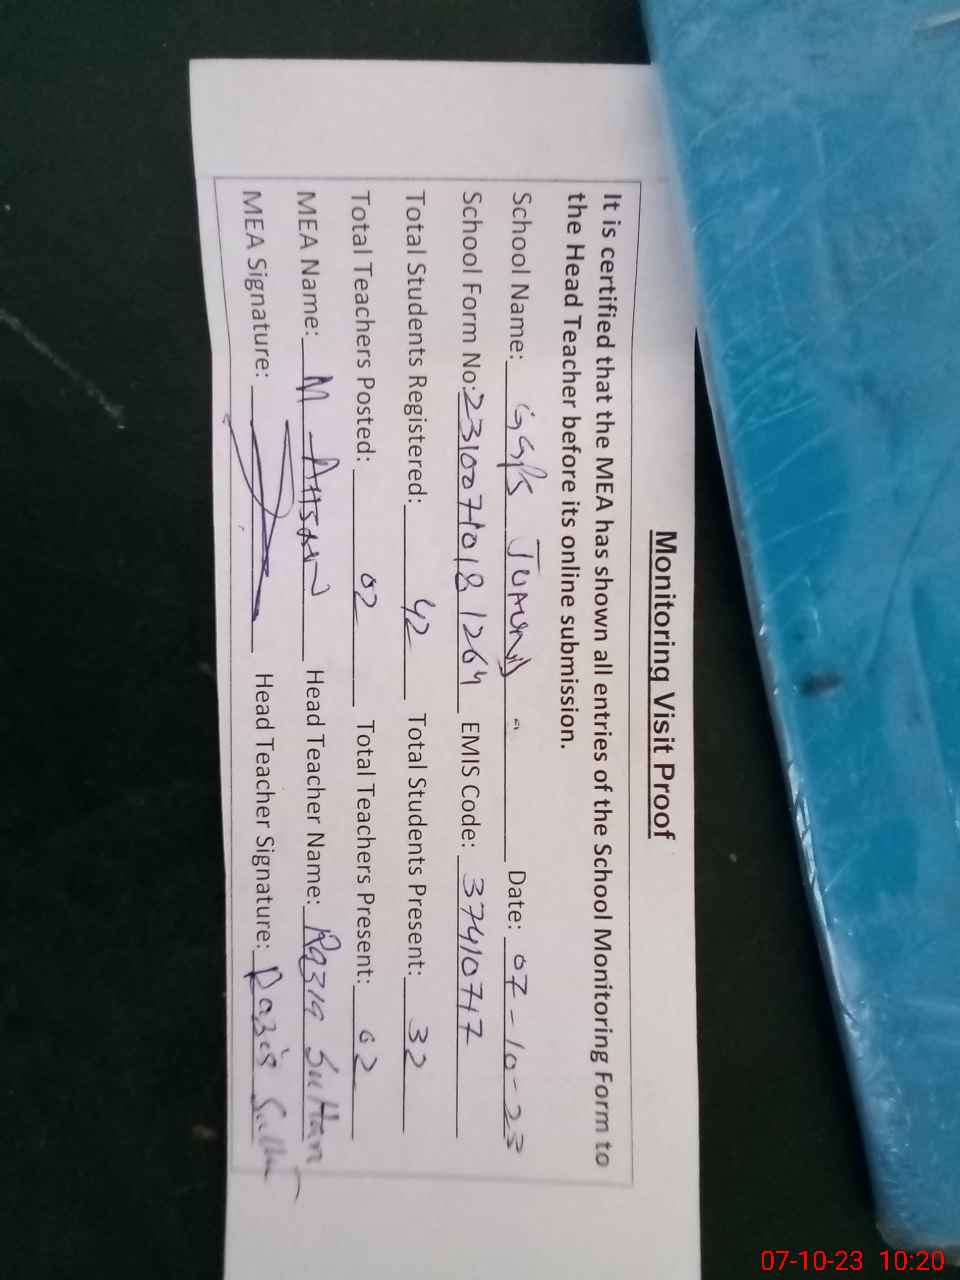 Monitoring Visit Proof
It is certified that the MEA has shown all entries of the School Monitoring Form to
the Head Teacher before its online submission.
School Name: GGPS Date: 07-10-23
School Form No: 23100710181264 EMIS Code: 37410717
Total Students Registered: 42 Total Students Present: 32
Total Teachers Posted: 02 Total Teachers Present: 02
MEA Name: M AHSAN Head Teacher Name: Razia Sultan
MEA Signature: Head Teacher Signature: Razia
07-10-23 10:20